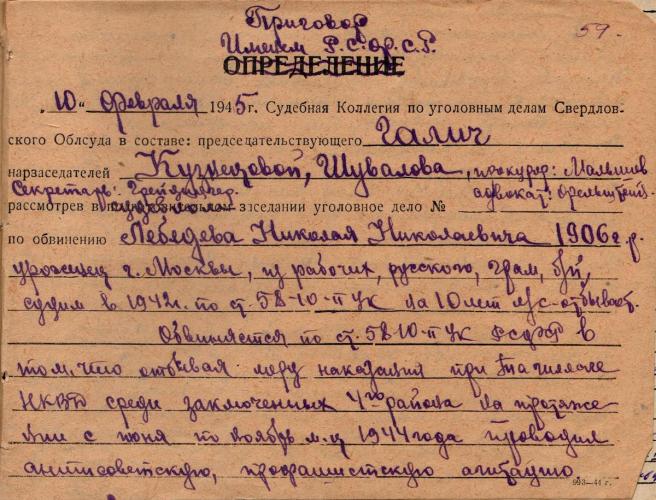 Приговор
59.
Именем Р.С.Ф.С.Р.
ОПРЕДЕЛЕНИЕ
„10" февраля 1945 г. Судебная Коллегия по уголовным делам Свердлов-
ского Облсуда в составе: председательствующего Галич
нарзаседателей Кузнецовой, Шувалова, прокурор: Малышев
Секретарь: адвокат:
рассмотрев в заседании уголовное дело №
по обвинению Лебедева Николая Николаевича 1906 г. р.
урожец г. Москвы, из рабочих, русского, грам, б/п,
судим в 1942г. по ст. 58-10-II УК на 10 лет л/с - отбывает.
Обвиняется по ст. 58-10-II УК РСФСР в
том, что отбывая меру наказания при Тагиллаге
НКВД среди заключенных 4го района на протяже
нии с июня по ноябрь м-ц 1944 года проводил
антисоветскую, профашистскую агитацию.
993—44 г.